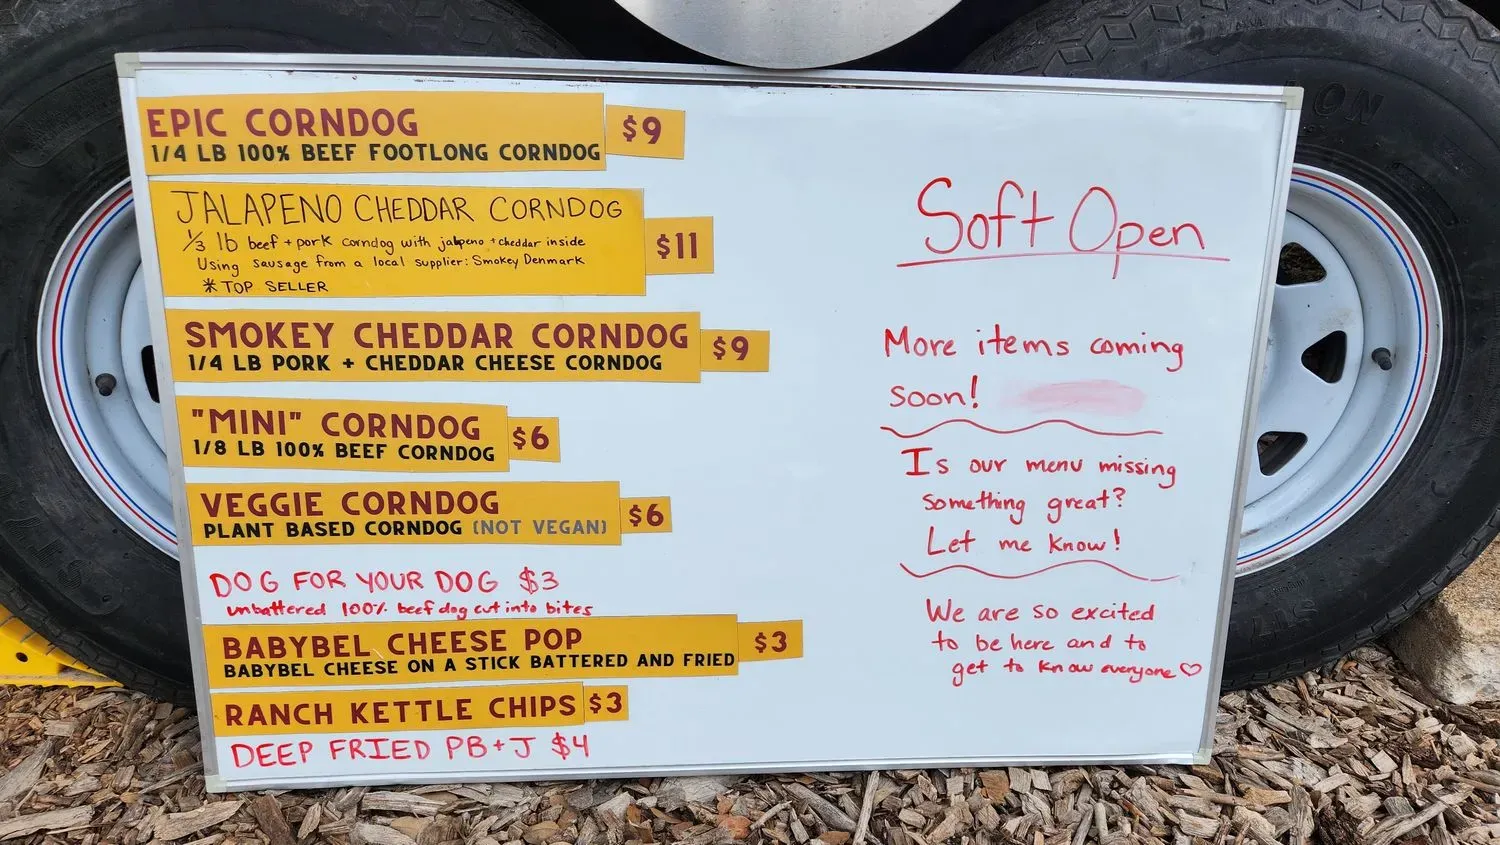 EPIC CORNDOG $9
1/4 LB 100% BEEF FOOTLONG CORNDOG
JALAPENO CHEDDAR CORNDOG
1/3 lb beef + pork corndog with jalapeno + cheddar inside $11
Using sausage from a local supplier: Smokey Denmark
* TOP SELLER
SMOKEY CHEDDAR CORNDOG $9
1/4 LB PORK + CHEDDAR CHEESE CORNDOG
"MINI" CORNDOG $6
1/8 LB 100% BEEF CORNDOG
VEGGIE CORNDOG $6
PLANT BASED CORNDOG (NOT VEGAN)
DOG FOR YOUR DOG $3
unbattered 100% beef dog cut into bites
BABYBEL CHEESE POP $3
BABYBEL CHEESE ON A STICK BATTERED AND FRIED
RANCH KETTLE CHIPS $3
DEEP FRIED PB+J $4
Soft Open
More items coming
soon!
Is our menu missing
something great?
Let me know!
We are so excited
to be here and to
get to know everyone♡